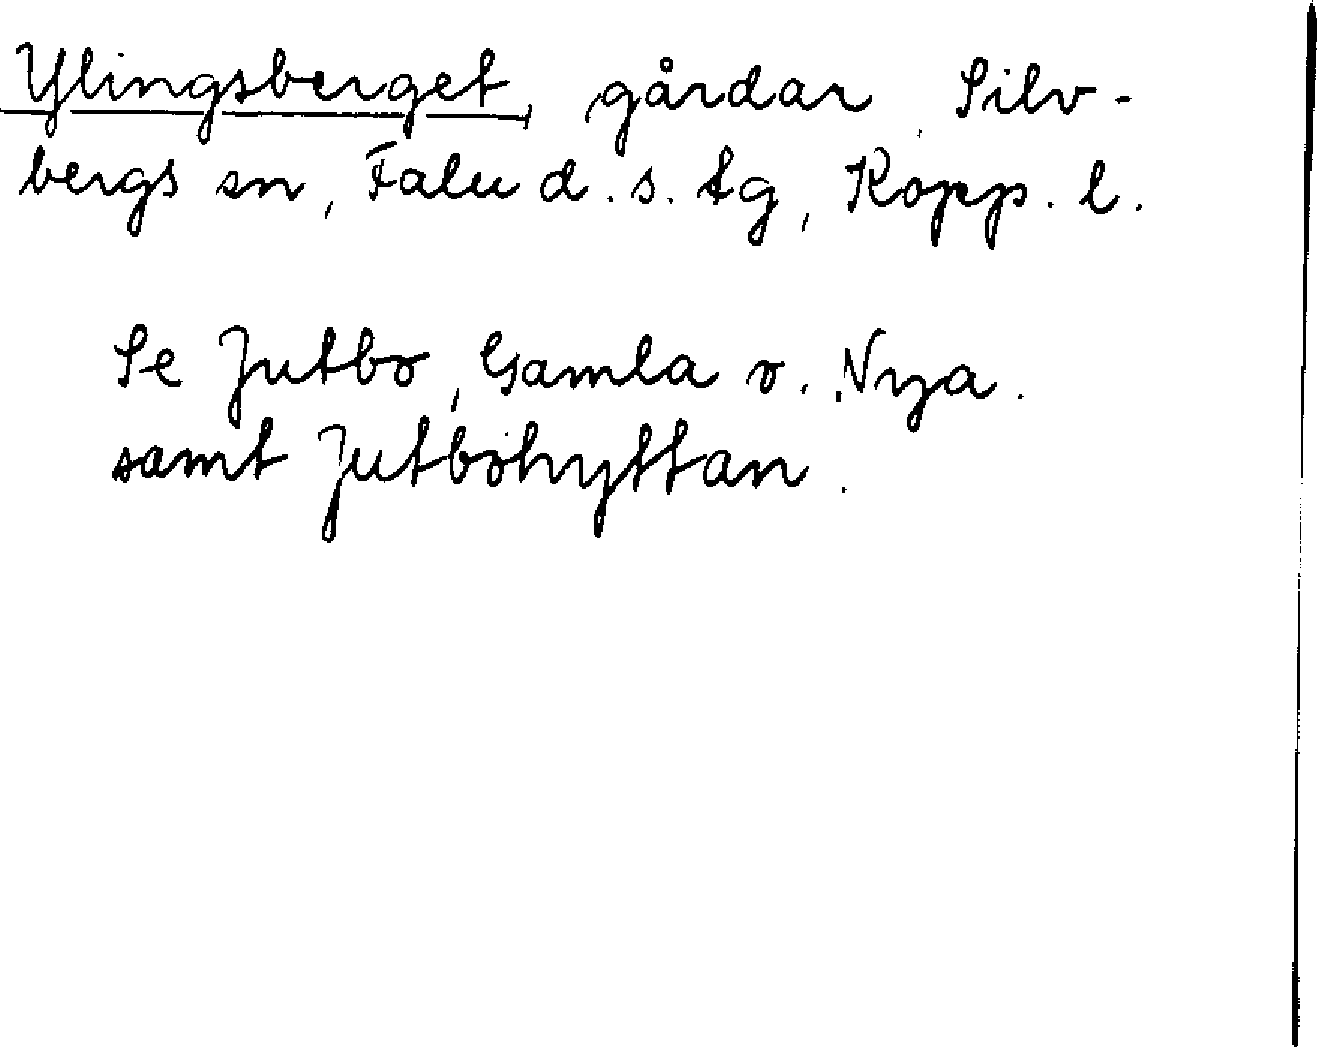 Ylingsberget, gårdar, Silv-
bergs sn, Falu d. s. tg, Kopp. l.
Se Jutbo, Gamla o. Nya.
samt Jutbohyttan.